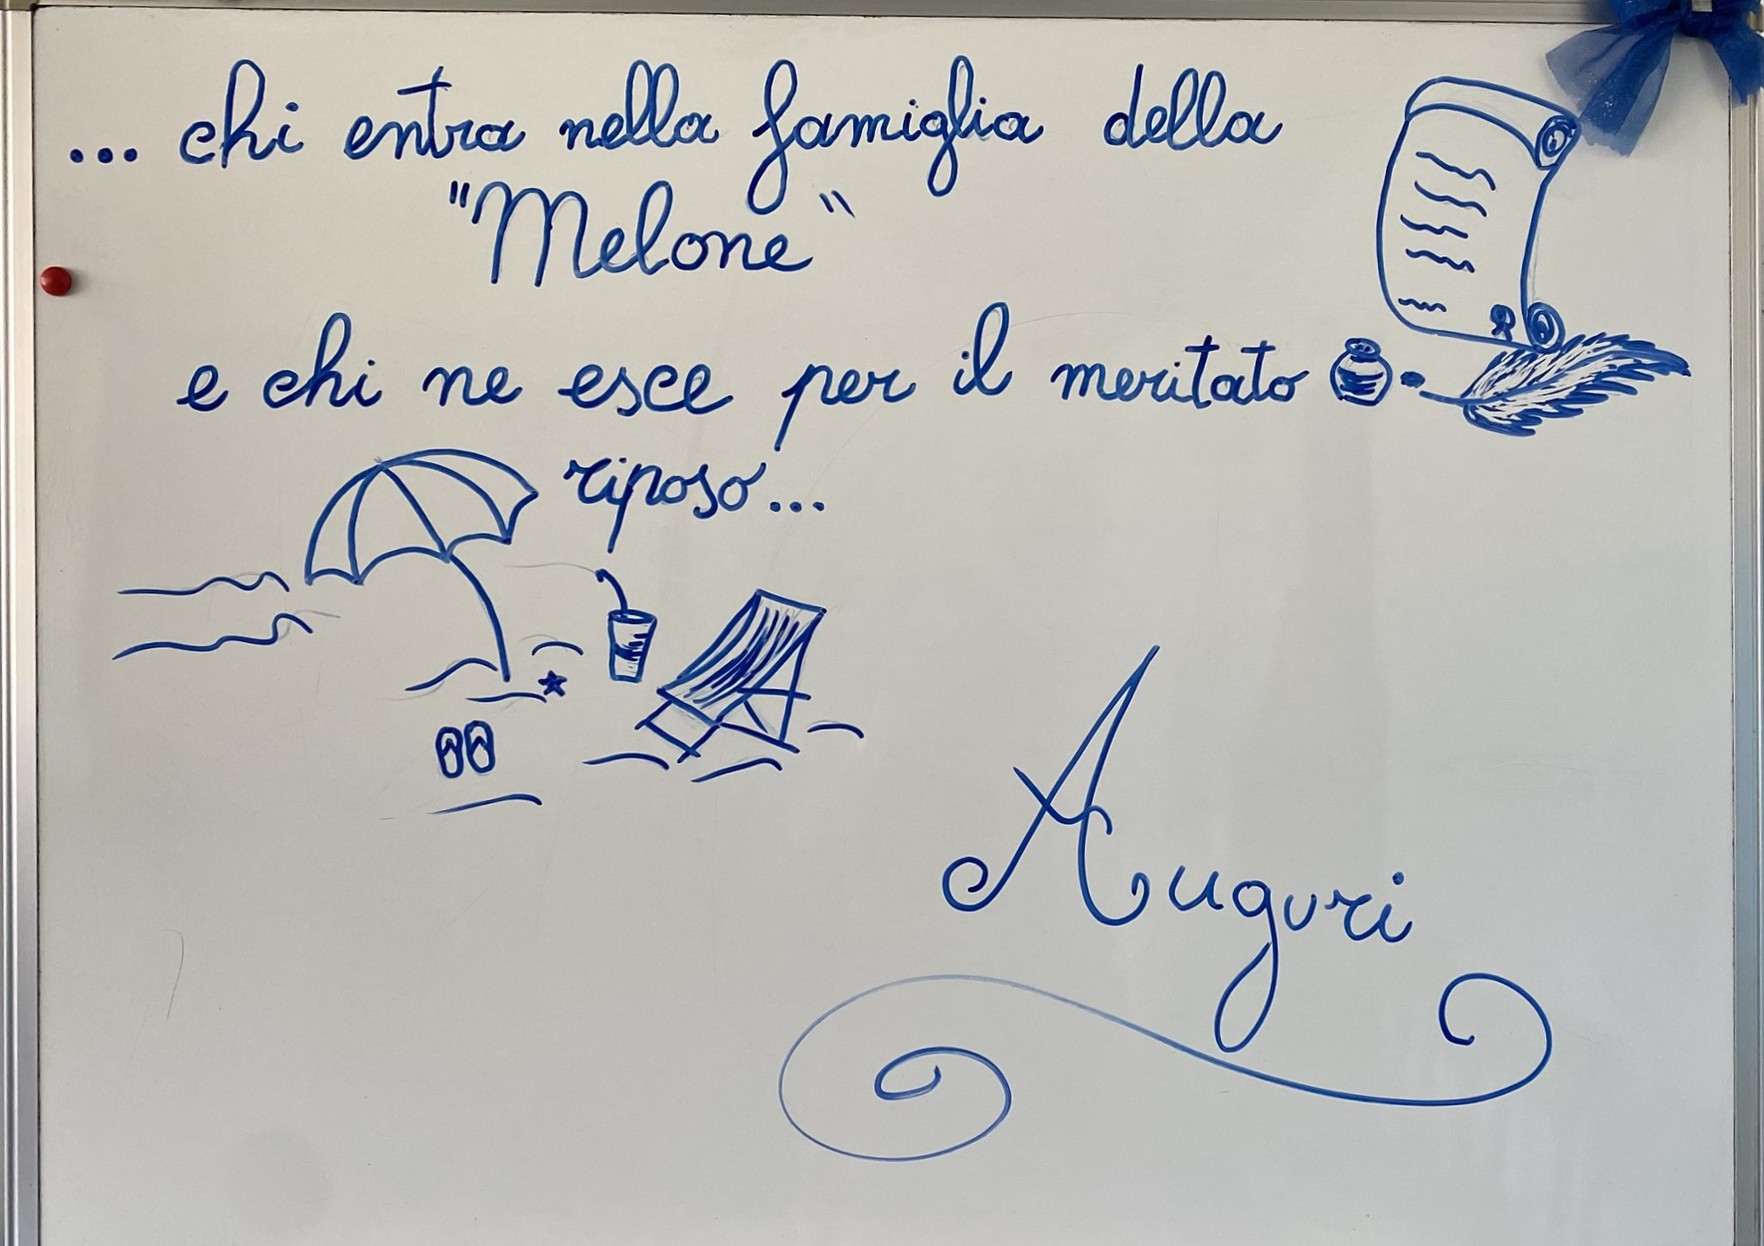 ... chi entra nella famiglia della
"Melone"
e chi ne esce per il meritato
riposo...
Auguri